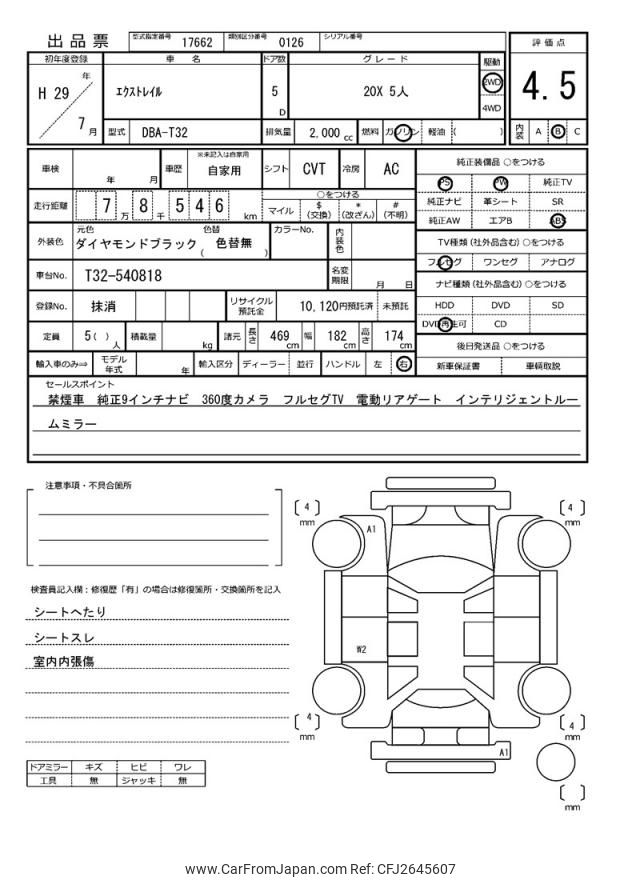 出品票 型式指定番号 17662 類別区分番号 0126 シリアル番号
評価点
4.5
内装 A B C
初年度登録 車名 ドア数 グレード 駆動
H 29 年 7 月 エクストレイル 5 D 20X 5人 2WD 4WD
型式 DBA-T32 排気量 2,000 cc 燃料 ガソリン 軽油 ( )
車検 年 月 車歴 ※未記入は自家用 自家用 シフト CVT 冷房 AC
走行距離 7 万 8 千 5 4 6 km ○をつける
マイル $(交換) *(改ざん) #(不明)
外装色 元色 ダイヤモンドブラック 色替 ( 色替無 ) カラーNo. 内装色
車台No. T32-540818 名変期限 月 日
登録No. 抹消 リサイクル預託金 10,120円預託済 未預託
定員 5( )人 積載量 kg 諸元 長さ 469 cm 幅 182 cm 高さ 174 cm
輸入車のみ⇒ モデル年式 年 輸入区分 ディーラー 並行 ハンドル 左 右
純正装備品 ○をつける
PS PW 純正TV
純正ナビ 革シート SR
純正AW エアB ABS
TV種類(社外品含む)○をつける
フルセグ ワンセグ アナログ
ナビ種類(社外品含む)○をつける
HDD DVD SD
DVD再生可 CD
後日発送品 ○をつける
新車保証書 車輌取説
セールスポイント
禁煙車 純正9インチナビ 360度カメラ フルセグTV 電動リアゲート インテリジェントルー
ムミラー
注意事項・不具合箇所
検査員記入欄:修復歴「有」の場合は修復箇所・交換箇所を記入
シートへたり
シートスレ
室内内張傷
ドアミラー キズ ヒビ ワレ
工具 無 ジャッキ 無
4 mm
4 mm
A1
W2
4 mm
4 mm
A1
mm
www.CarFromJapan.com Ref: CFJ2645607